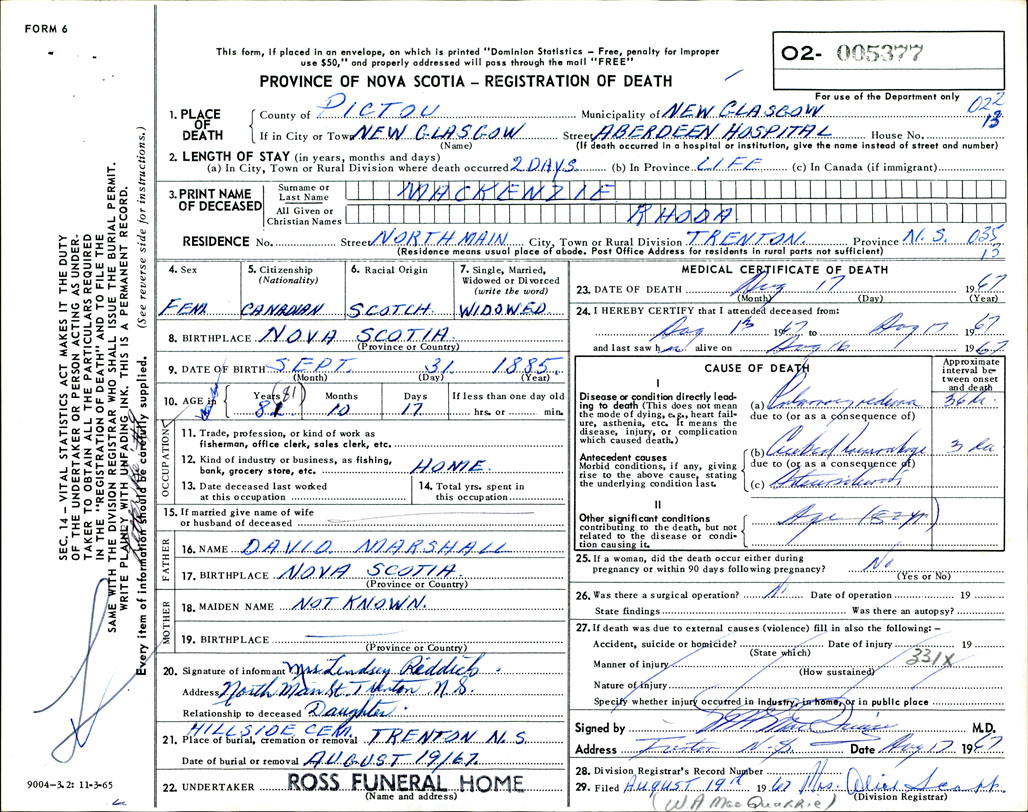 FORM 6
This form, if placed in an envelope, on which is printed "Dominion Statistics – Free, penalty for improper
use $50," and properly addressed will pass through the mail "FREE"
PROVINCE OF NOVA SCOTIA – REGISTRATION OF DEATH
O2- 005377
For use of the Department only
022
13
1. PLACE OF DEATH
County of PICTOU Municipality of NEW GLASGOW
If in City or Town NEW GLASGOW Street ABERDEEN HOSPITAL House No.
(Name) (If death occurred in a hospital or institution, give the name instead of street and number)
2. LENGTH OF STAY (in years, months and days)
(a) In City, Town or Rural Division where death occurred 2 DAYS (b) In Province LIFE (c) In Canada (if immigrant)
3. PRINT NAME OF DECEASED
Surname or Last Name MACKENZIE
All Given or Christian Names RHODA
RESIDENCE No. Street NORTH MAIN City, Town or Rural Division TRENTON. Province N.S. 035
13
(Residence means usual place of abode. Post Office Address for residents in rural parts not sufficient)
4. Sex FEM
5. Citizenship (Nationality) CANADIAN
6. Racial Origin SCOTCH
7. Single, Married, Widowed or Divorced (write the word) WIDOWED
8. BIRTHPLACE NOVA SCOTIA
(Province or Country)
9. DATE OF BIRTH SEPT. 31 1885
(Month) (Day) (Year)
10. AGE in Years (81) Months 10 Days 17 If less than one day old hrs. or min.
OCCUPATION
11. Trade, profession, or kind of work as
fisherman, office clerk, sales clerk, etc.
12. Kind of industry or business, as fishing,
bank, grocery store, etc. HOME.
13. Date deceased last worked
at this occupation
14. Total yrs. spent in
this occupation
15. If married give name of wife
or husband of deceased
FATHER
16. NAME DAVID MARSHALL
17. BIRTHPLACE NOVA SCOTIA.
(Province or Country)
MOTHER
18. MAIDEN NAME NOT KNOWN.
19. BIRTHPLACE
(Province or Country)
20. Signature of informant Mrs Lindsey Reddick
Address North Main St. Trenton N.S.
Relationship to deceased Daughter.
HILLSIDE CEM.
21. Place of burial, cremation or removal TRENTON N.S.
Date of burial or removal AUGUST 19/67.
22. UNDERTAKER ROSS FUNERAL HOME
(Name and address)
MEDICAL CERTIFICATE OF DEATH
23. DATE OF DEATH Aug 17 1967
(Month) (Day) (Year)
24. I HEREBY CERTIFY that I attended deceased from:
Aug 1967 to Aug 17 1967
and last saw h alive on Aug 16 1967
CAUSE OF DEATH
Approximate interval between onset and death
I
Disease or condition directly leading to death (This does not mean
the mode of dying, e.g., heart failure, asthenia, etc. It means the
disease, injury, or complication
which caused death.)
(a) Pulmonary edema 36
due to (or as a consequence of)
Antecedent causes
Morbid conditions, if any, giving
rise to the above cause, stating
the underlying condition last.
(b) Cerebral hemorrhage 3
due to (or as a consequence of)
(c)
II
Other significant conditions
contributing to the death, but not
related to the disease or condition causing it.
Age
25. If a woman, did the death occur either during
pregnancy or within 90 days following pregnancy? No
(Yes or No)
26. Was there a surgical operation? No Date of operation 19
State findings Was there an autopsy?
27. If death was due to external causes (violence) fill in also the following: –
Accident, suicide or homicide? Date of injury 19
(State which)
331X
Manner of injury
(How sustained)
Nature of injury
Specify whether injury occurred in industry, in home, or in public place
Signed by M.D.
Address Trenton N.S. Date Aug 17 1967
28. Division Registrar's Record Number
29. Filed AUGUST 19th 1967 Mrs. Alice
(Division Registrar)
(W A MacQuarrie)
SEC. 14 – VITAL STATISTICS ACT MAKES IT THE DUTY
OF THE UNDERTAKER OR PERSON ACTING AS UNDER-
TAKER TO OBTAIN ALL THE PARTICULARS REQUIRED
IN THE "REGISTRATION OF DEATH" AND TO FILE THE
SAME WITH THE DIVISION REGISTRAR WHO SHALL ISSUE THE BURIAL PERMIT.
WRITE PLAINLY WITH UNFADING INK. THIS IS A PERMANENT RECORD.
Every item of information should be carefully supplied. (See reverse side for instructions.)
9004-3.2: 11-3-65